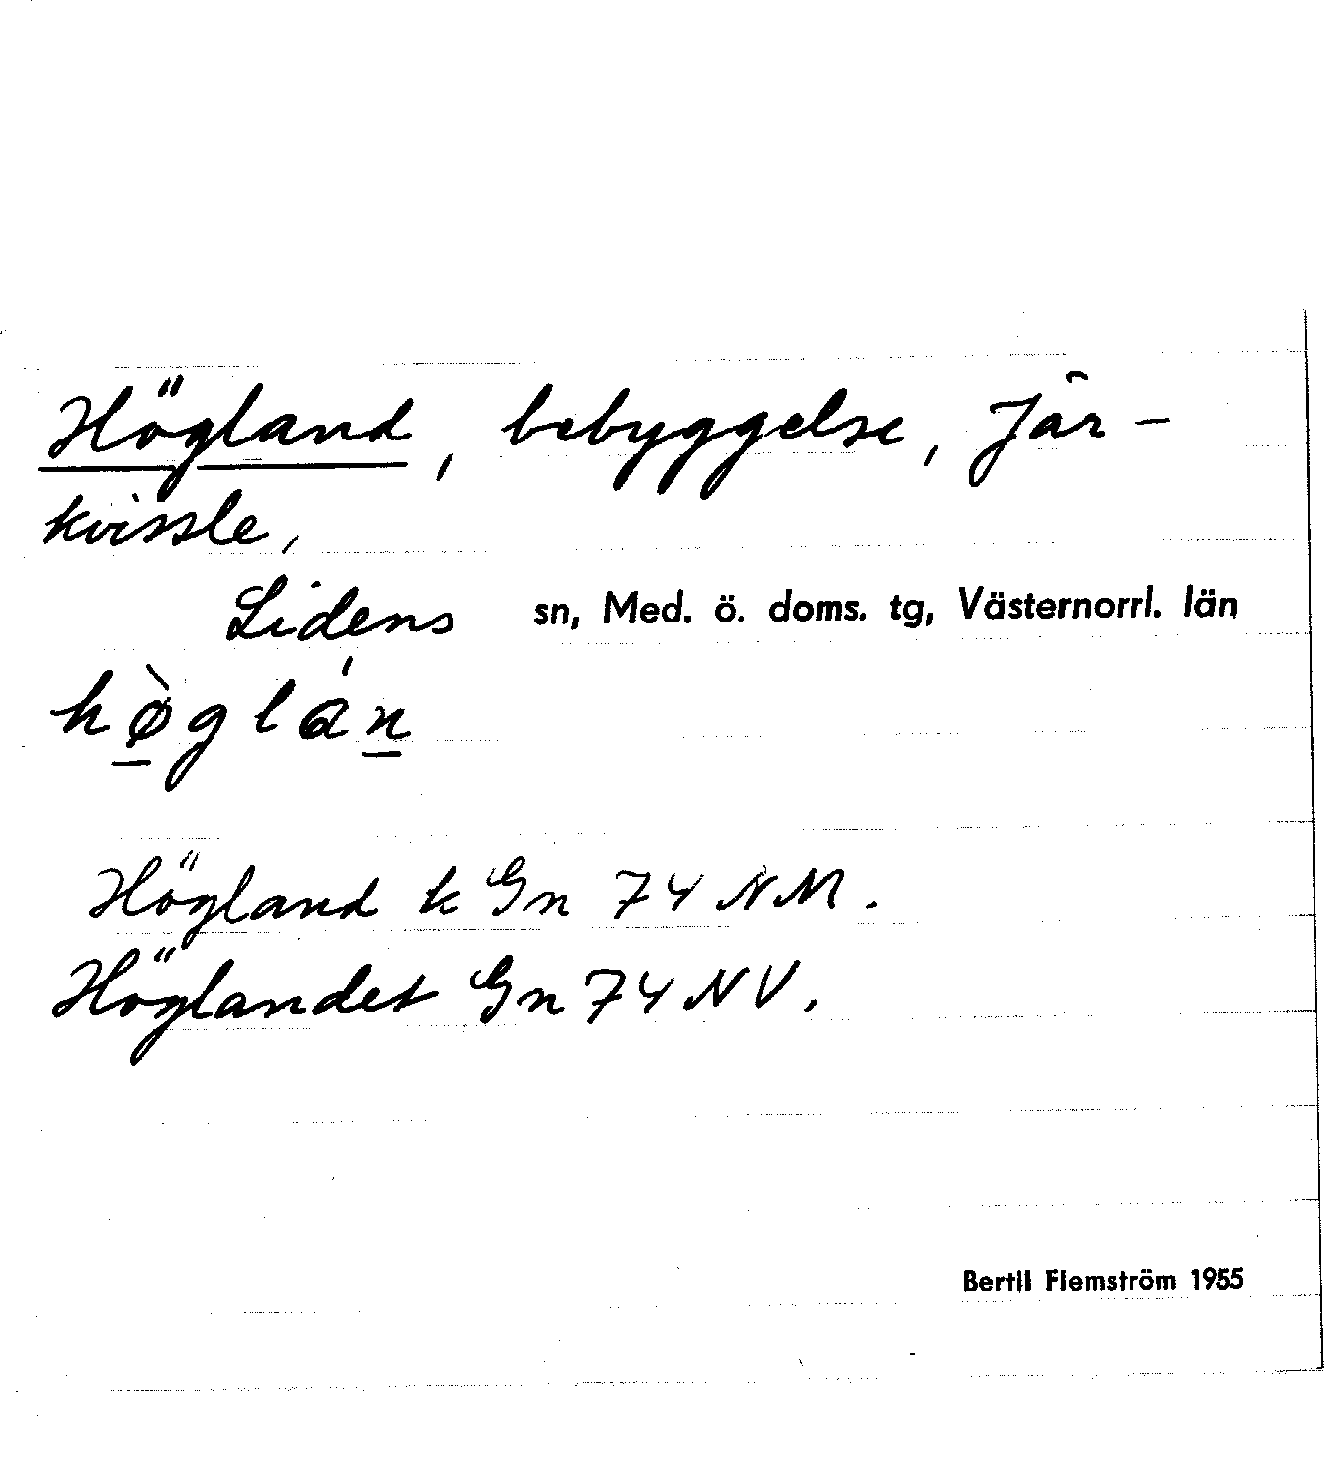 Högland, bebyggelse, Jär-
kvissle,
Lidens sn, Med. ö. doms. tg, Västernorrl. län
hø̀glán
Högland k Gn 74 NM.
Höglandet Gn 74 NV.
Bertil Flemström 1955